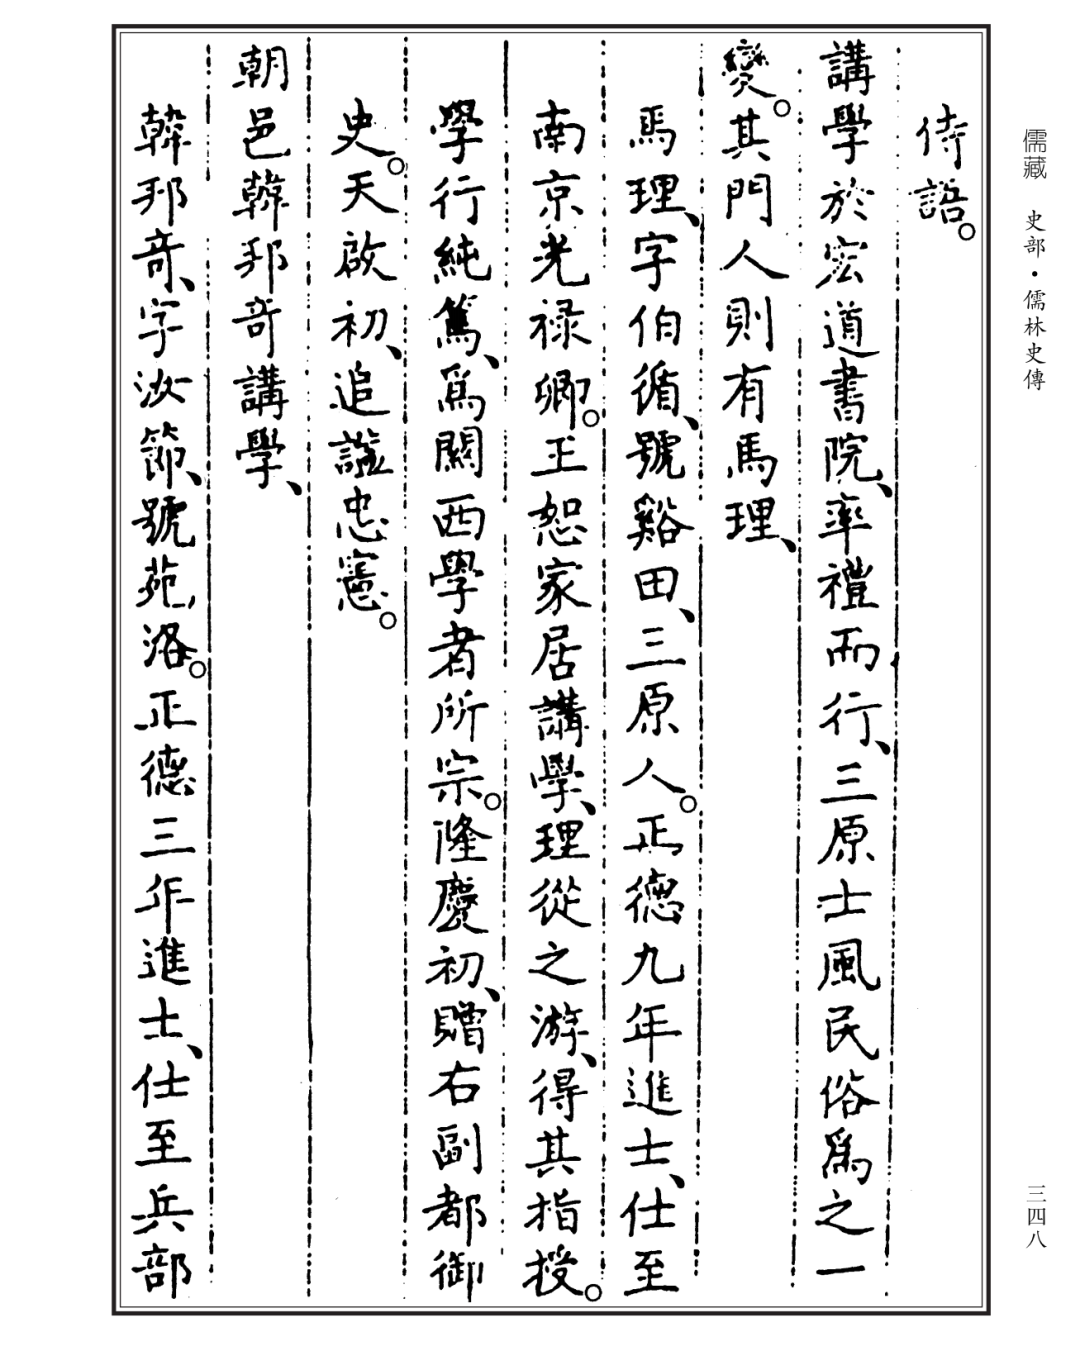 儒藏 史部·儒林史傳
侍語。
講學於宏道書院、率禮而行、三原士風民俗爲之一
變。其門人則有馬理、
馬理、字伯循、號谿田、三原人。正德九年進士、仕至
南京光祿卿。王恕家居講學、理從之游、得其指授。
學行純篤、爲關西學者所宗。隆慶初、贈右副都御
史。天啟初、追謚忠憲。
朝邑韓邦奇講學、
韓邦奇、字汝節、號苑洛。正德三年進士、仕至兵部
三四八